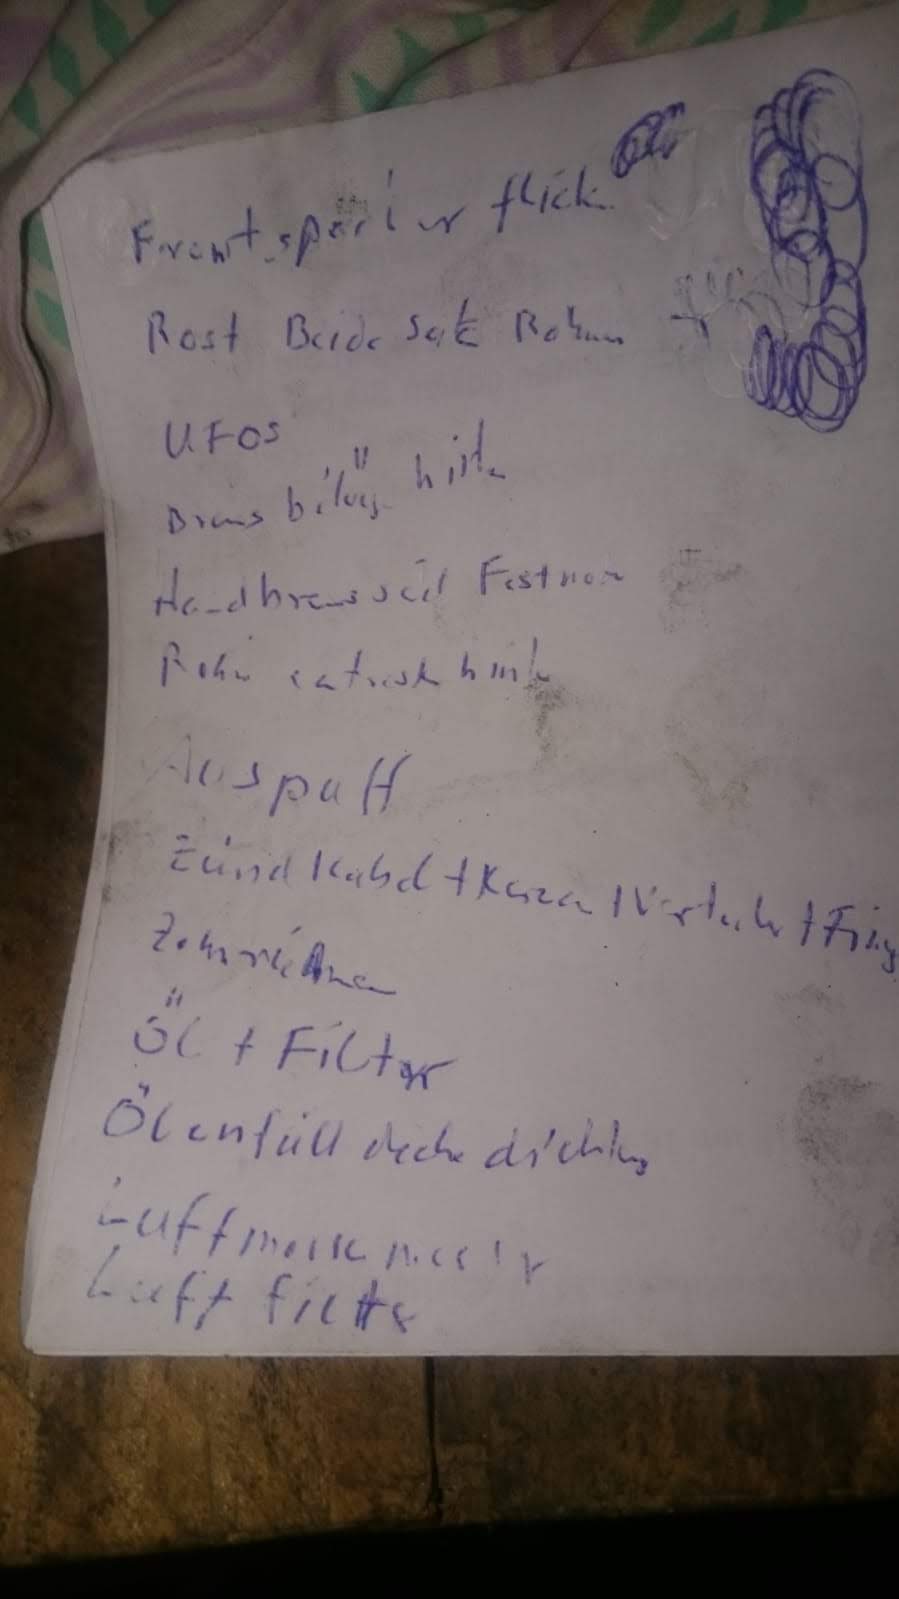 Frontspoiler flick
Rost Beide Seit Rahm
UFOS
Brems beläg hint
Handbremsseil Festmon
Rohr hint
Auspuff
Zündkabel + Kerzen + Verteiler + Fing
Zahnriemen
Öl + Filter
Öleinfülldeckel dichtung
Luftmassenmesser
Luftfilter